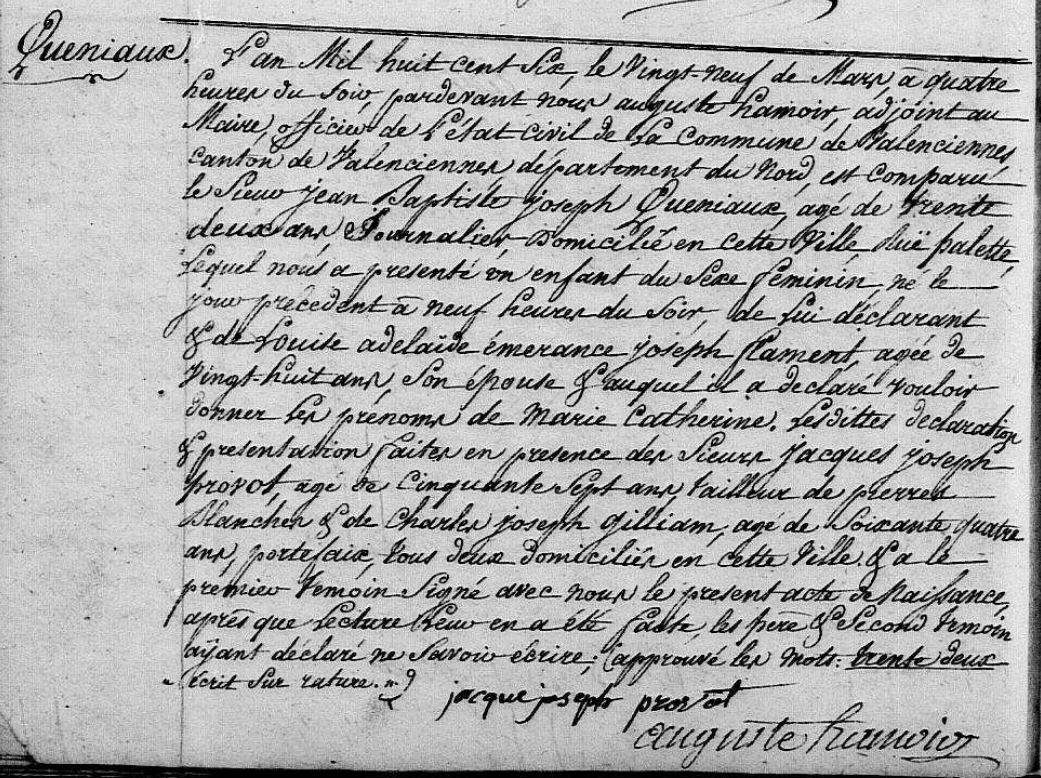 Queniaux.
L'an Mil huit cent Six, le Vingt-neuf de Mars, à quatre
heures du Soir, pardevant nous auguste hamoir, adjoint au
Maire, officier de l'état civil de La Commune de Valenciennes
canton de Valenciennes département du Nord, est comparu
le Sieur jean Baptiste joseph Queniaux, agé de trente
deux ans, Journalier Domicilié en cette Ville, Ruë palette,
Lequel nous a presenté un enfant du Sexe feminin, né le
jour précedent à neuf heures du Soir, de Lui déclarant
& de Louise adelaïde émerance joseph flament, agée de
Vingt-huit ans, Son épouse & auquel il a declaré vouloir
donner Les prénoms de Marie Catherine. Lesdittes déclaration
& presentation faites en presence des Sieurs jacques joseph
provot, agé de Cinquante Sept ans, tailleur de pierres
Blanches & de Charles joseph gilliam, agé de Soixante quatre
ans, portefaix, tous deux domiciliés en cette Ville. & a le
premier temoin Signé avec nous le present acte de Naissance,
après que Lecture Leur en a été faite, les père & Second temoin
aÿant déclaré ne Savoir écrire; (approuvé les mots: trente deux
écrit Sur rature.)
jacque joseph provot
auguste hamoir